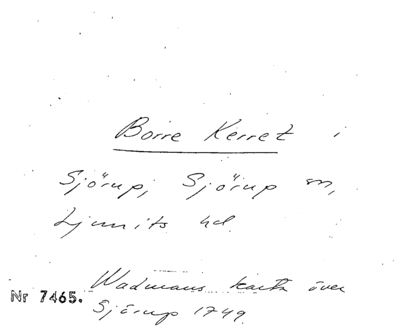 Borre Kerret i
Sjörup, Sjörup sn,
Ljunits hd.
Wadmans karta över
Nr 7465.
Sjörup 1749.